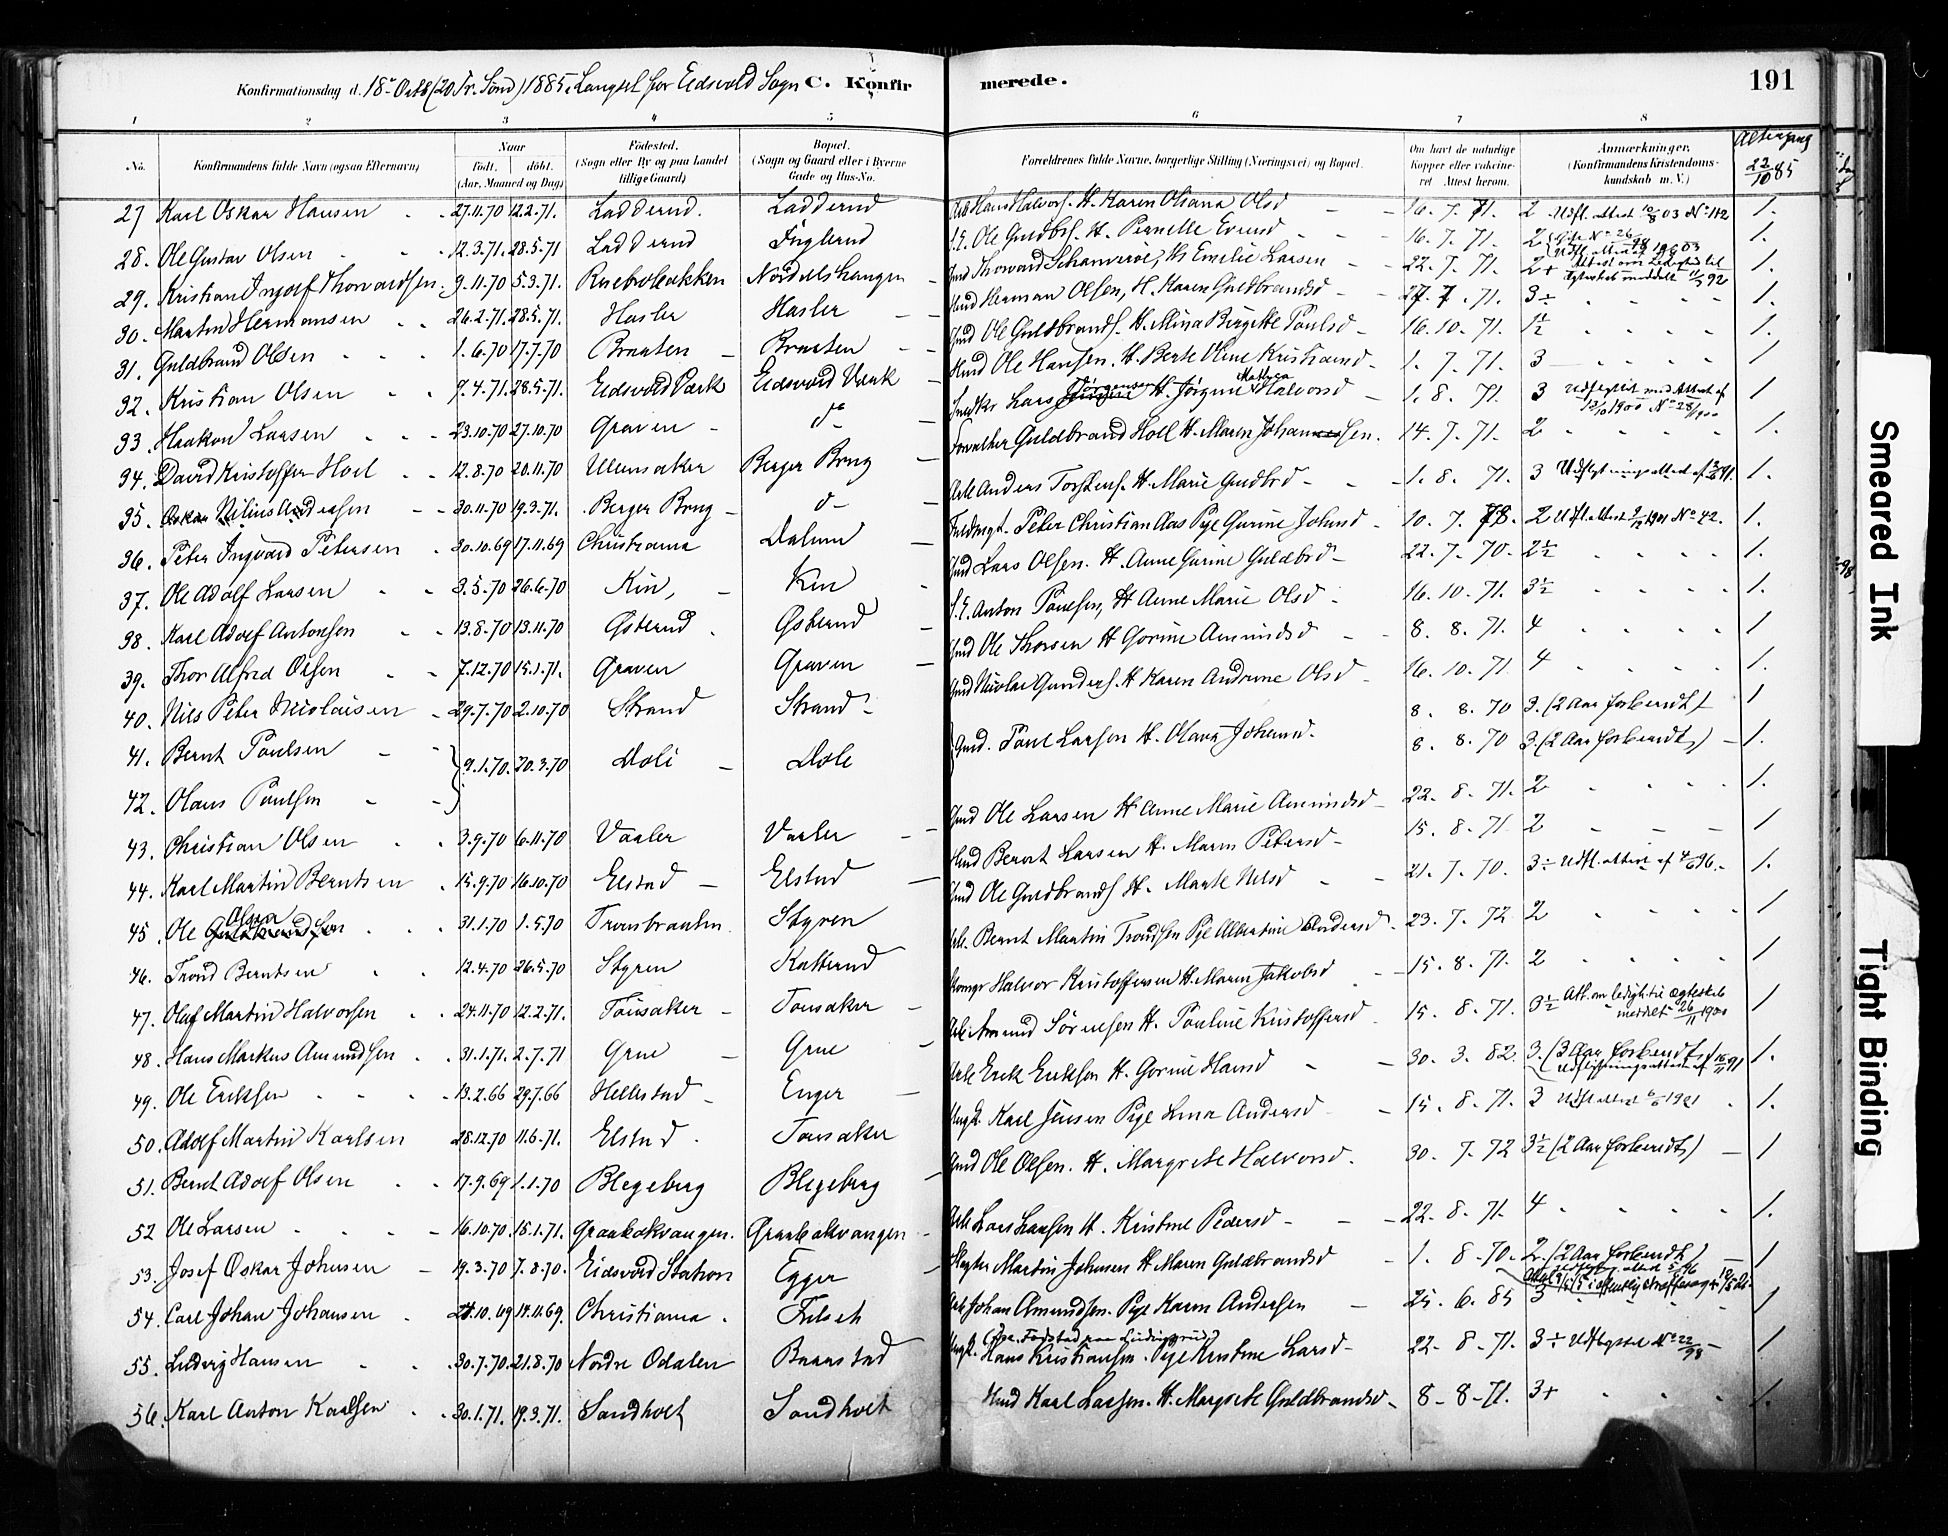 Konfirmationsdag d. 18de Octb (20 Tr. Sönd) 1885, Langset for Eidsvold Sogn C. Konfirmerede. 191
1 2 3 4 5 6 7 8
No. Konfirmandens fulde Navn (ogsaa Efternavn) Naar Födt. döbt. (Aar, Maaned og Dag) Födested. (Sogn eller By og paa Landet tillige Gaard) Bopæl. (Sogn og Gaard eller i Byerne Gade og Hus-No. Forældrenes fulde Navne, borgerlige Stilling (Næringsvei) og Bopæl. Om havt de naturlige Kopper eller vakcineret Attest herom. Anmærkninger. (Konfirmandens Kristendomskundskab m. V.) Altergang 22/10 85
27 Karl Oskar Hansen 27.11.70 12.2.71. Ladderud. Ladderud Arb Hans Halvors. H. Karen Oliana Olsd 16. 7. 71. 2 Udfl. attest 10/8 03 No 112 1.
28. Ole Gustav Olsen 12.3.71. 28.5.71 Ladderud Inglerud S.E. Ole Guldbs. H. Pernille Evensd 16. 7. 71. 2 1.
29. Kristian Ingolf Thorvardsen 9.11.70 5.3.71. Nordelshaugen Gmd Thorvard H. Emilie Larsen 22. 7. 71. 2+ 1.
30. Martin Hermansen 26.2.71. 28.5.71. Hasler Hasler Hmd Herman Olsen, H. Karen Guldbrandsd 27. 7. 71. 3÷ 1.
31. Guldbrand Olsen 1.6.70 17.7.70 Braaten Braaten Gmd Ole Guldbrands. H. Mina Birgitte Poulsd 16. 10. 71. 1½ 1.
32. Kristian Olsen 9.4.71. 28.5.71. Eidsvold Værk Eidsvold Værk Hmd Ole Hansen. H. Berte Oline Kristiansd 1. 7. 71. 3 1
33. Haakon Larsen 23.10.70 27.10.70 Graven do Snedker Lars Jörgensen H. Jörgine Mathea Halvorsd 1. 8. 71. 3 Udflyttet med Attest af 13/10 1900 No 28/1900 1
34. David Kristoffer Holl 12.8.70 20.11.70 Ullensaker Berger Brug Forvalter Guldbrand Holl H. Maren Johannesen. 14. 7. 71. 2 1.
35. Oskar Nilius Andersen 30.11.70 19.3.71. Berger Brug do Arb Anders Torstens. H. Marie Guldbd 1. 8. 71. 3 1.
36. Peter Ingvard Petersen 30.10.69 17.11.69 Christiania Dalum Fuldmgt. Peter Christian Aas Pige Gurine Johnsd 10. 7. 78. 2 Udfl. attest 1901 No 42. 1.
37. Ole Adolf Larsen 3.5.70 26.6.70 Kin, Kin Gmd Lars Olsen. H. Anne Gurine Guldbd 22. 7. 70. 2½ 1.
38. Karl Adolf Antonsen 13.8.70 13.11.70 Østerud Østerud S.E. Anton Poulsen, H. Anne Marie Olsd 16. 10. 71. 3½ 1.
39. Thor Alfred Olsen 7.12.70 15.1.71. Graven Graven Gmd Ole Thorsen H Gorine Amundsd 8. 8. 71. 4 1
40. Nils Peter Nicolaisen 29.7.70 2.10.70 Strand Strand Gmd Nicolai Gunders. H Karen Andrine Olsd 16. 10. 71 4 1.
41. Bernt Poulsen 9.1.70. 20.3.70 Doli Dole Gmd. Poul Larsen H. Olava Johansd. 8. 8. 70 3. (2 Aar forberedt) 1
42. Olaus Poulsen 8. 8. 70 3. (2 Aar forberedt) 1.
43. Christian Olsen 3.9.70 6.11.70 Vaaler Vaaler Gmd Ole Larsen H Anne Marie Amundsd 22. 8. 71. 2 1.
44. Karl Martin Berntsen 15.9.70 16.10.70 Elstad Elstad Hmd Bernt Larsen H. Maren Petersd 15. 8. 71 2 1
45. Ole Olsen Guldbrandsen 31.1.70 1.5.70 Tronsbraaten Styren Gmd Ole Guldbrands H. Marte Nilsd 21. 7. 70. 3÷ Udfl. attest af 96. 1.
46. Trond Berntsen 12.4.70 26.5.70 Styren Katterud Arb. Bernt Martin Trondsen Pige Albertine Andersd 23. 7. 72 2 1
47. Olaf Martin Halvorsen 24.11.70 12.2.71. Tønsaker Tønsaker Halvor Kristoffersen H. Maren Jakobsd 15. 8. 71. 2 1
48. Hans Markus Amundsen 31.1.71. 2.7.71 Grue Grue Arb. Amund Sörensen H. Pauline Kristoffersd 15. 8. 71. 3½ Att. om ledigh. til ægteskab meddelt 26/11 1900 1
49. Ole Eriksen 13.2.66 29.7.66 Hellestad Enger Arb Erik Erikson H. Gorine Hansd 30. 3. 82. 3. (3 Aar forberedt) 1.
50. Adolf Martin Karlsen 28.12.70 11.6.71. Elstad Tønsaker Ungk. Karl Jensen Pige Lina Andersd 15. 8. 71. 3 Udfl. attest 1921 1.
51. Bernt Adolf Olsen 17.9.69 1.1.70 Blegeberg Blegeberg Gmd Ole Olsen. H. Margrete Halvorsd. 30. 7. 72 3½ (2 Aar forberedt) 1
52 Ole Larsen 16.10.70 15.1.71. Graabækvangen. Graabækvangen Arb Lars Larsen H. Kristine Pedersd 22. 8. 71. 4 1.
53. Josef Oskar Johnsen 19.3.70 7.8.70. Eidsvold Station Egger Martin Johnsen H. Maren Guldbrandsd 1. 8. 70. 2. (2 Aar forberedt) 1
54. Carl Johan Johansen 10.69 14.11.69. Christiania. Filset Arb Johan Amundsen. Pige Karen Andersen 25. 6. 85 3 1
55. Ludvig Hansen 30.7.70. 21.8.70 Nordre Odalen Baarstad Ungk. Hans Kristiansen. Pige Kristine Larsd 22. 8. 71. 3÷ Udflyttet No 22/98 1
56. Karl Anton Karlsen 30.1.71. 19.3.71. Sandholt Sandholt Hmd Karl Larsen. H. Margrete Guldbrandsd 8. 8. 71. 3+ 1.
Smeared Ink
Tight Binding